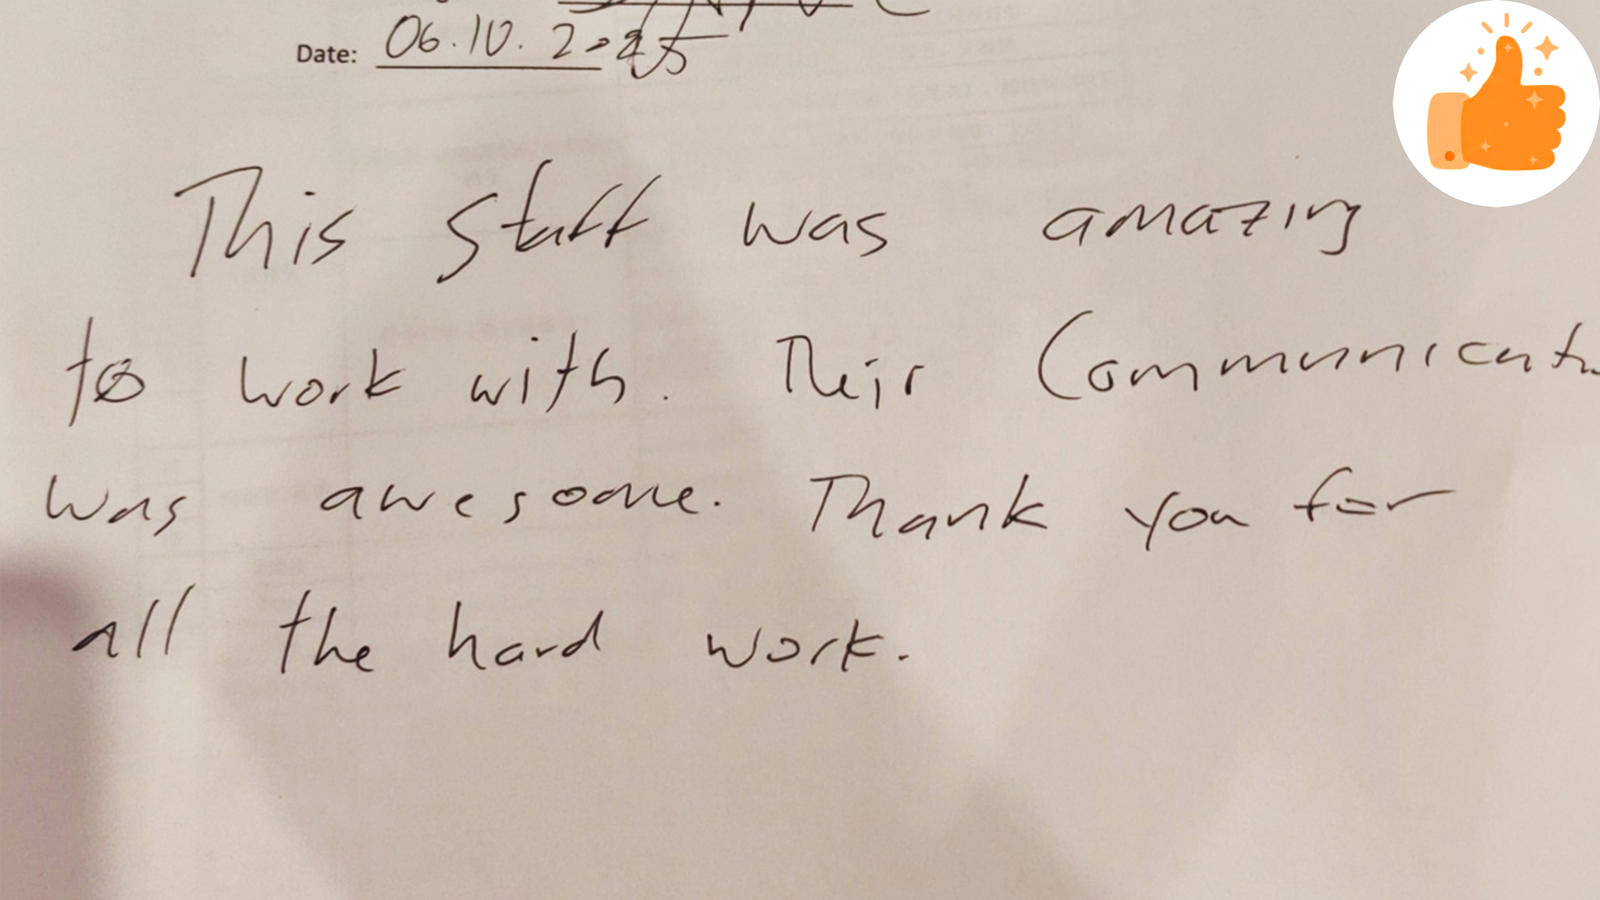 Date: 06.10.2025
This staff was amazing
to work with. Their Communicat
was awesome. Thank you for
all the hard work.